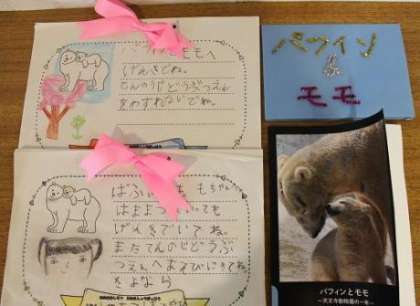 パフィンとモモへ
げんきでね。
てんのうじどうぶつえん
をわすれないでね。
ばふぃんももちゃん
はままつへいっても
げんきでいてね。
またてんのじどうぶ
つえんへあそびにきてね。
さよなら
パフィン
&
モモ
パフィンとモモ
～天王寺動物園の一年～